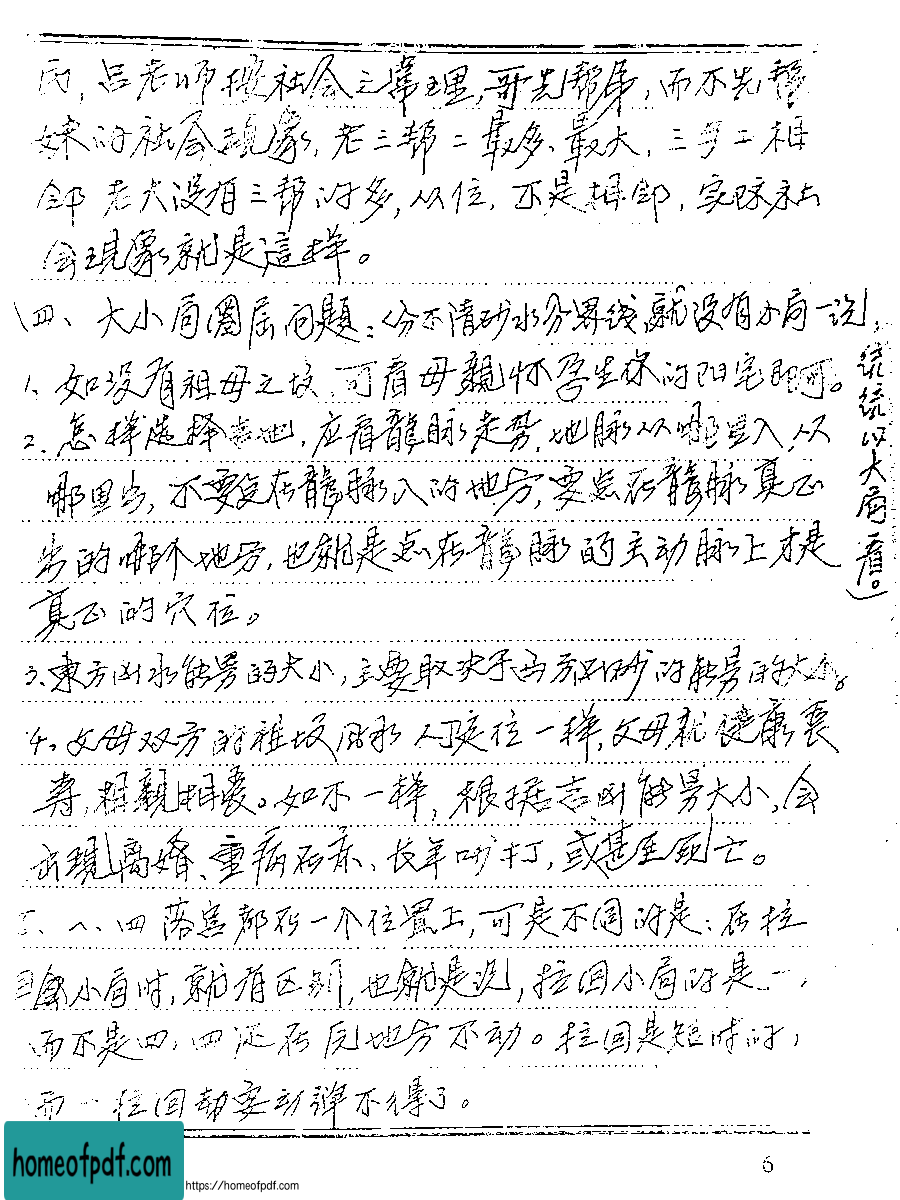 内,吕老师按社会之常理,哥先帮弟,而不先帮
妹的社会现象,老三帮二最多、最大,三与二相
邻 老大没有三帮的多,从位,不是相邻,实际社
会现象就是這样。
四、大小局圈居问题:(分不清砂水分界线,就没有小局一说,
统统以大局看。)
1、如没有祖母之坟,可看母親怀孕生你的阳宅即可。
2、怎样选择吉地,应看龍脉走势,地脉从哪里入,从
哪里出,不要定在龍脉入的地方,要点在龍脉真正
出的哪个地方,也就是点在龍脉的主动脉上才是
真正的穴位。
3、東方凶水能量的大小,主要取决于西方凶砂的能量的大小。
4、父母双方的祖坟风水 定位一样,父母就健康長
寿,相親相爱。如不一样,根据吉凶能量大小,会
出现离婚、重病在床、长年吵打,或甚至死亡。
一、四落宫都在一个位置上,可是不同的是:在拉
回小局时,就有区别,也就是说,拉回小局的是一,
而不是四,四还在原地方不动。拉回是短时的,
而一拉回就要动弹不得了。
6
homeofpdf.com
https://homeofpdf.com